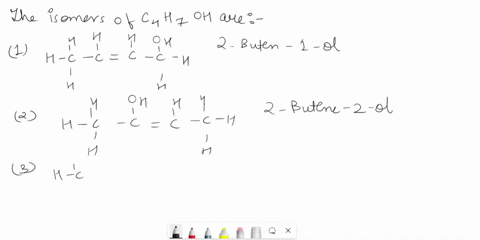 The isomers of C4H7OH are:-
H H H OH
(1) H-C-C=C-C-H 2-Buten-1-ol
H H
H OH H H
(2) H-C-C=C-C-H 2-Butene-2-ol
H H
(3) H-C